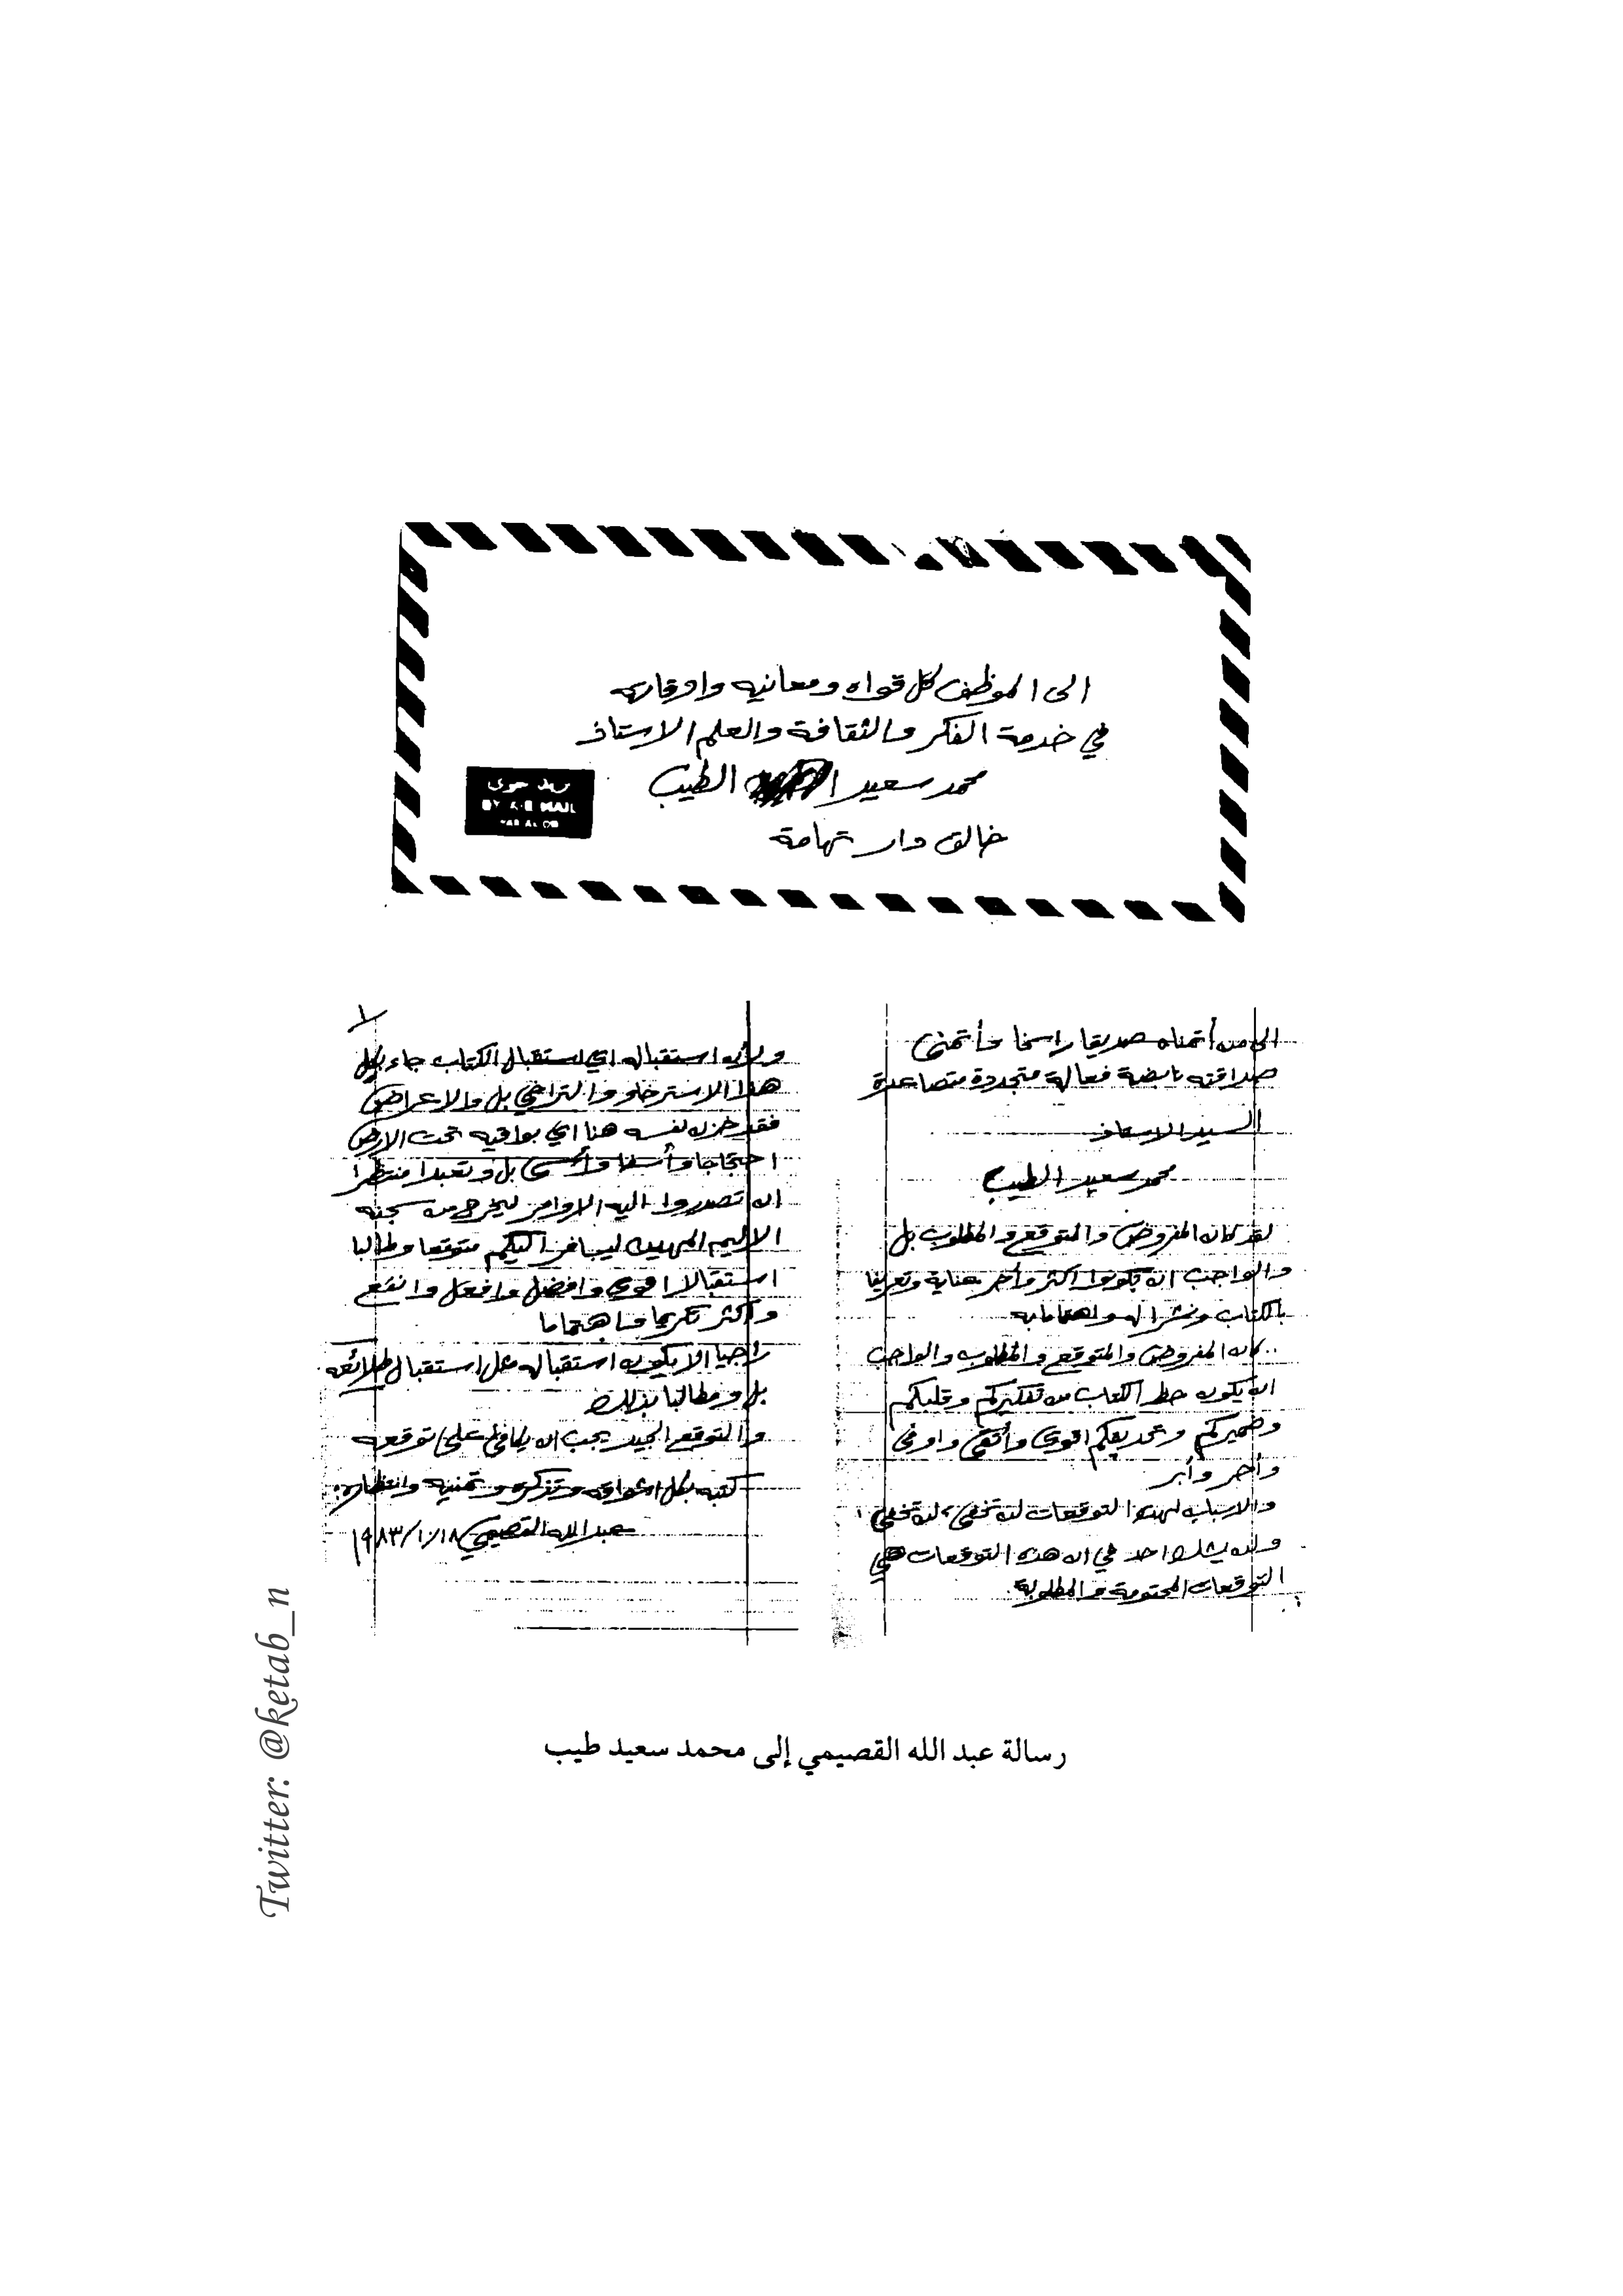 الى الموظف كل قواه ومعانيه واوقاته
في خدمة الفكر والثقافة والعلم الاستاذ
محمد سعيد الطيب
خالق دار تهامة
بريد جوي
BY AIR MAIL
PAR AVION
الى من أتمناه صديقا راسخا وأتمنى
صداقته نابضة فعالة متجددة متصاعدة
السيد الاستاذ
محمد سعيد الطيب
لقد كان المفروض والمتوقع والمطلوب بل
والواجب ان تكونوا اكثر وأحر عناية وتعريفا
بالكتاب ونشرا له واهتماما به
.. كان المفروض والمتوقع والمطلوب والواجب
ان يكون حظ الكتاب من تفكيركم وقلبكم
وضميركم اقوى وأتقى واوفى
وأحر وأبر
والاسباب لهذه التوقعات لن تخفى، لن تخفى،
ولن يشك احد في ان هذه التوقعات هي
التوقعات المحتومة والمطلوبة.
١
ولأن استقباله اي استقبال الكتاب جاء بكل
هذا الاسترخاء والتراخي بل والاعراض
فقد خزن نفسه هنا اي بواقيه تحت الارض
احتجاجا وأسفا وأسى بل وتعبدا منتظرا
ان تصدروا اليه الاوامر ليخرج من سجنه
الاليم المهين ليسافر اليكم متوقعا وطالبا
استقبالا اقوى وافضل وافعل وانفع
واكثر تكريما واهتماما
راجيا الا يكون استقباله مثل استقبال طلائعه
بل ومطالبا بذلك
والتوقع الجيد يجب ان يكافئ على توقعه
كتبه بكل اشواقه وتذكره وتمنيه وانتظاره:
عبدالله القصيمي ١٩٨٣/١٠/١٨
رسالة عبد الله القصيمي إلى محمد سعيد طيب
Twitter: @ketab_n